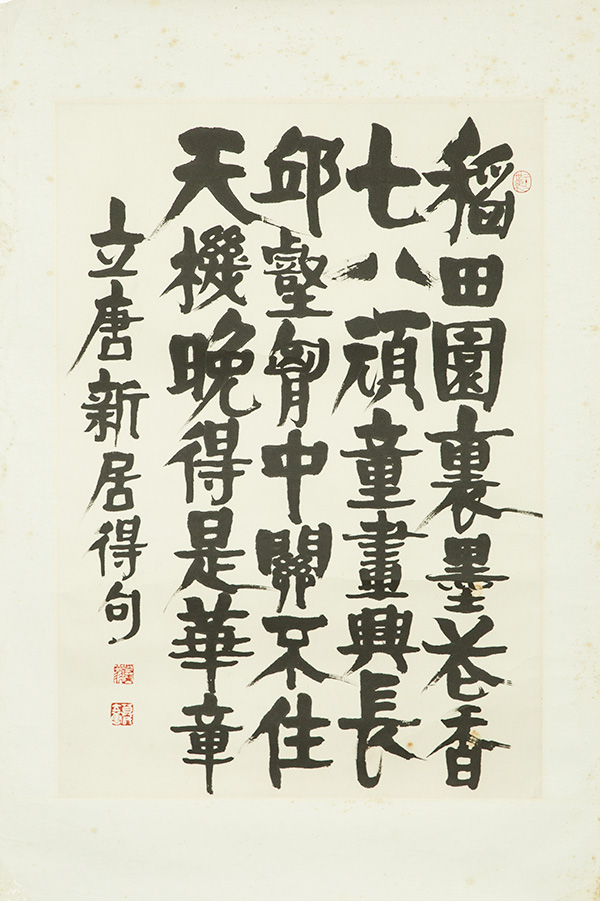 稻田園裏墨卷香
七八頑童畫興長
邱壑胷中關不住
天機晚得是華章
立唐新居得句